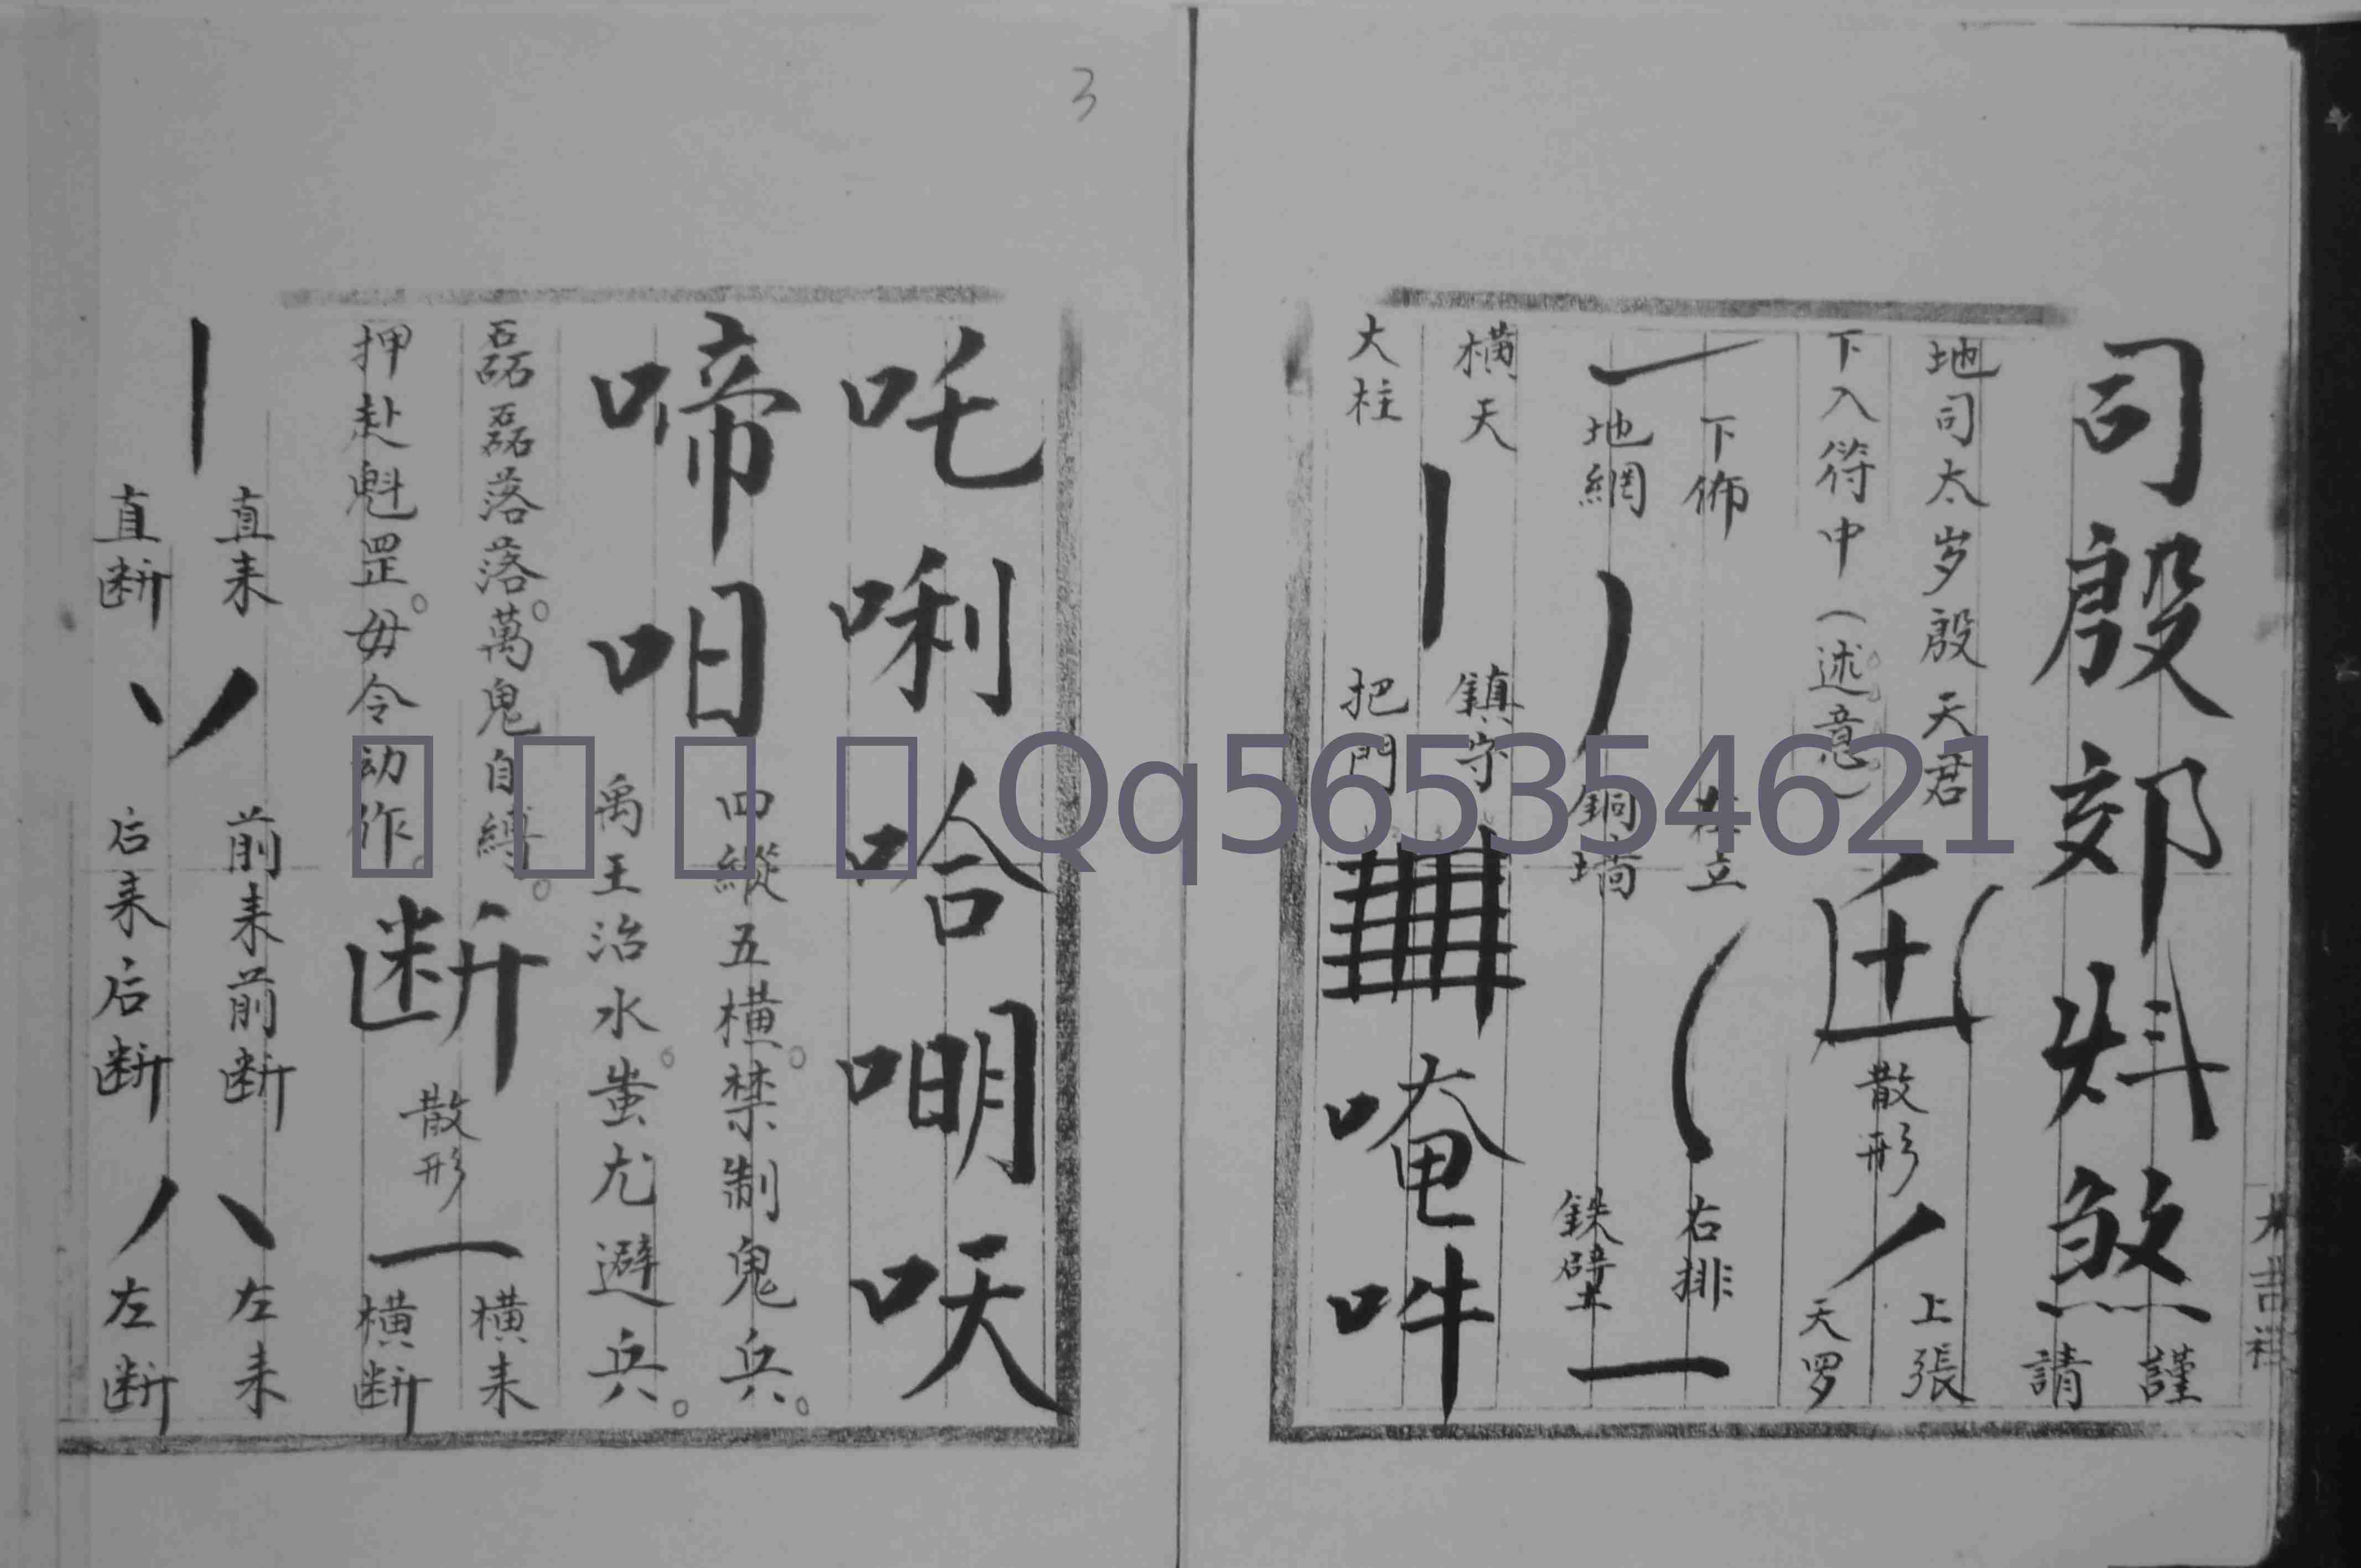 司殷郊㪵煞
謹請
地司太岁殷天君
下入符中（述意）
散形
上張
天罗
下佈
地網
左立
銅墙
右排
鉄壁
横天
大柱
鎮守
把門
唵吽
吒唎哈𠵼㕭
啼呾
四縱五横禁制鬼兵。
禹王治水蚩尤避兵。
磊磊落落。萬鬼自縛。
押赴魁罡。毋令动作。
断
散形
横来
横断
直来
直断
前来前断
后来后断
左来
左断
大吉祥
3
Qq565354621